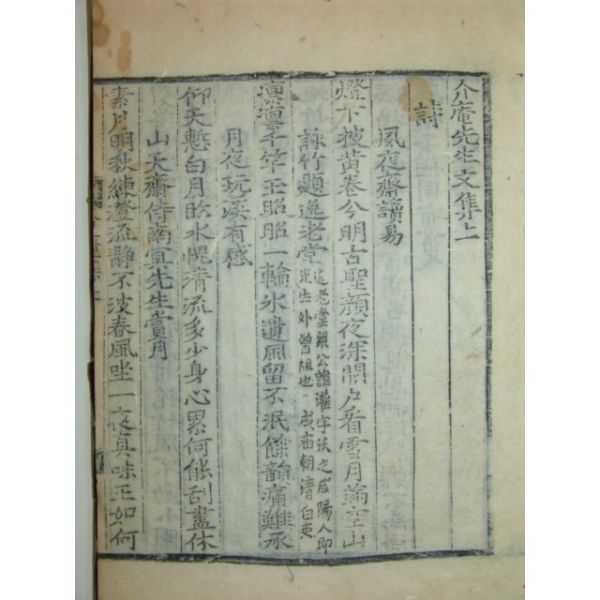 介庵先生文集上
詩
夙夜齋讀易
燈下披黃卷分明古聖顏夜深開戶看雪月滿空山
詠竹題逸老堂 逸老堂張公諱灌字沃之咸陽人即先生外曾祖也成庙朝清白吏
凜凜千竿玉昭昭一輪氷遺風留不泯餘韻痛難承
月夜玩溪有感
仰天慙白月臨水愧清流多少身心累何能刮盡休
山天齋侍南冥先生賞月
素月明秋練澄流靜不波春風坐一夜真味正如何